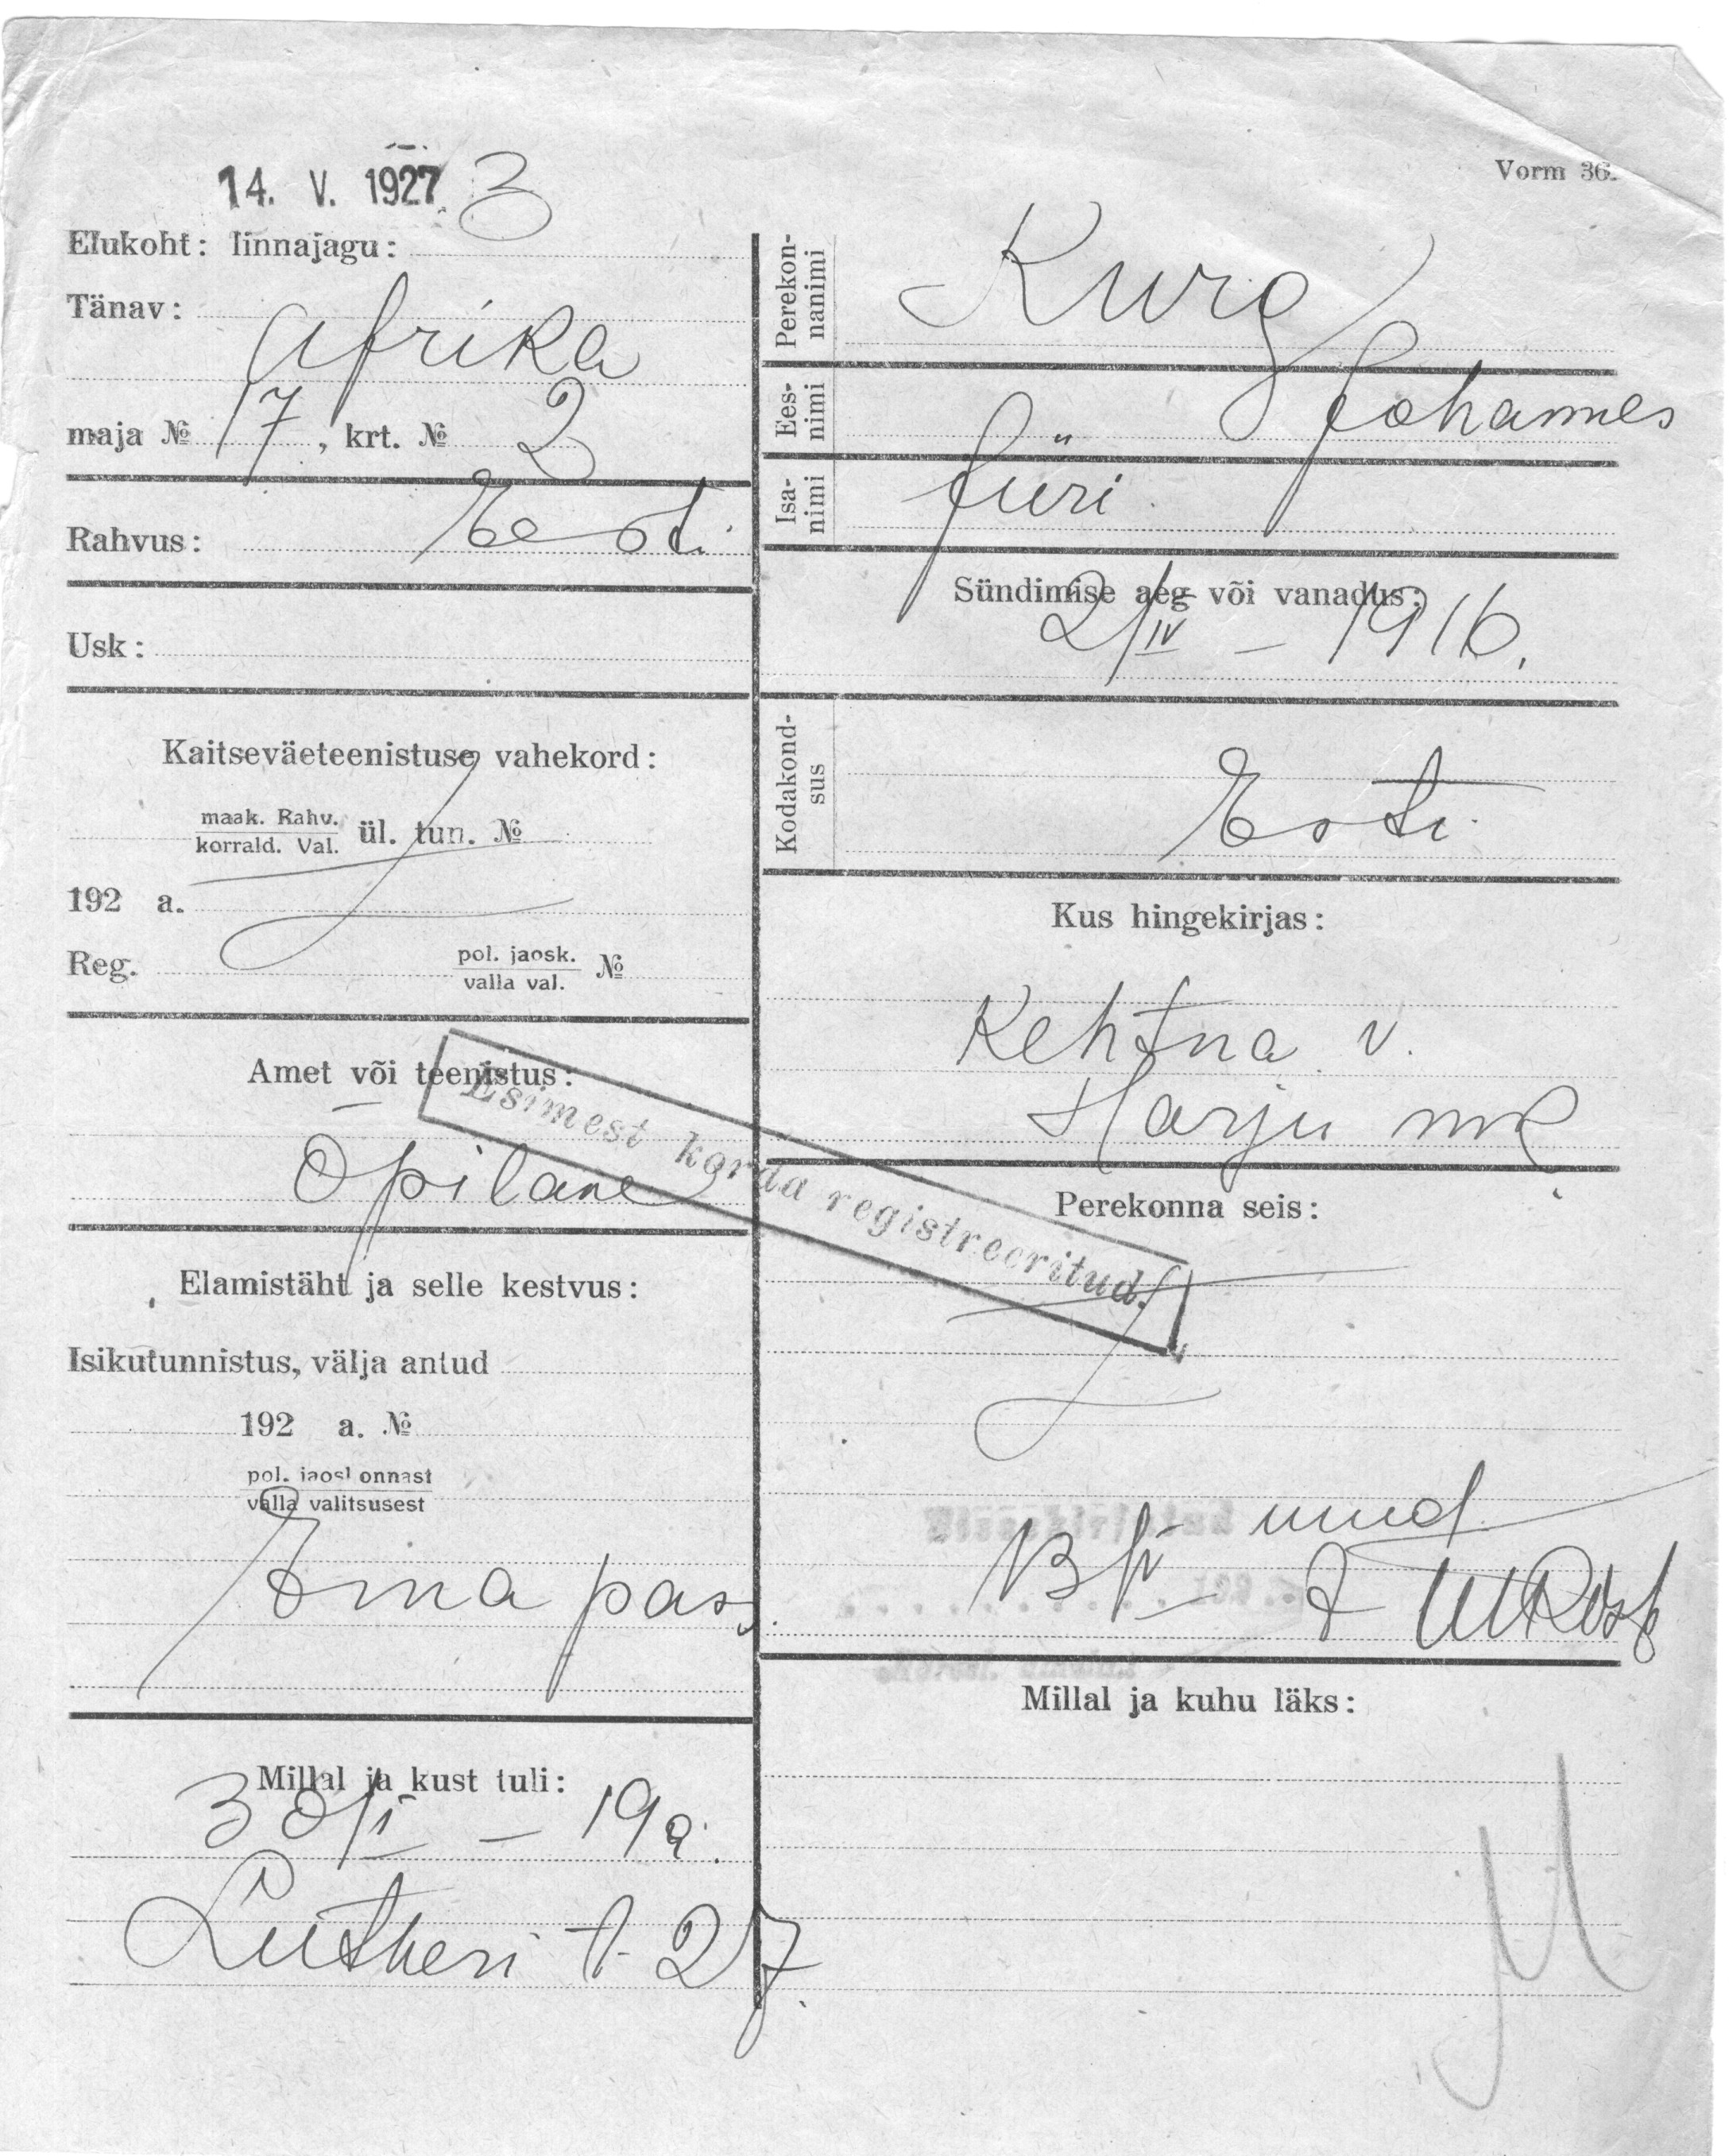 14. V. 1927
3
Vorm 36.
Elukoht: linnajagu:
Tänav:
Afrika
maja № 17, krt. № 2
Rahvus: Eesti
Usk:
Kaitseväeteenistuse vahekord:
maak. Rahv.
korrald. Val. ül. tun. №
192 a.
Reg. pol. jaosk.
valla val. №
Amet või teenistus:
Õpilane
Elamistäht ja selle kestvus:
Isikutunnistus, välja antud
192 a. №
pol. jaoskonnast
valla valitsusest
Ema pass.
Millal ja kust tuli:
30/I – 19 a.
Lutheri t. 27.
Perekon-
nanimi
Kurg
Ees-
nimi
Johannes
Isa-
nimi
Jüri
Sündimise aeg või vanadus:
2/IV – 1916.
Kodakond-
sus
Eesti
Kus hingekirjas:
Kehtna v.
Harju mk
Perekonna seis:
Esimest korda registreeritud.
uued
Millal ja kuhu läks: